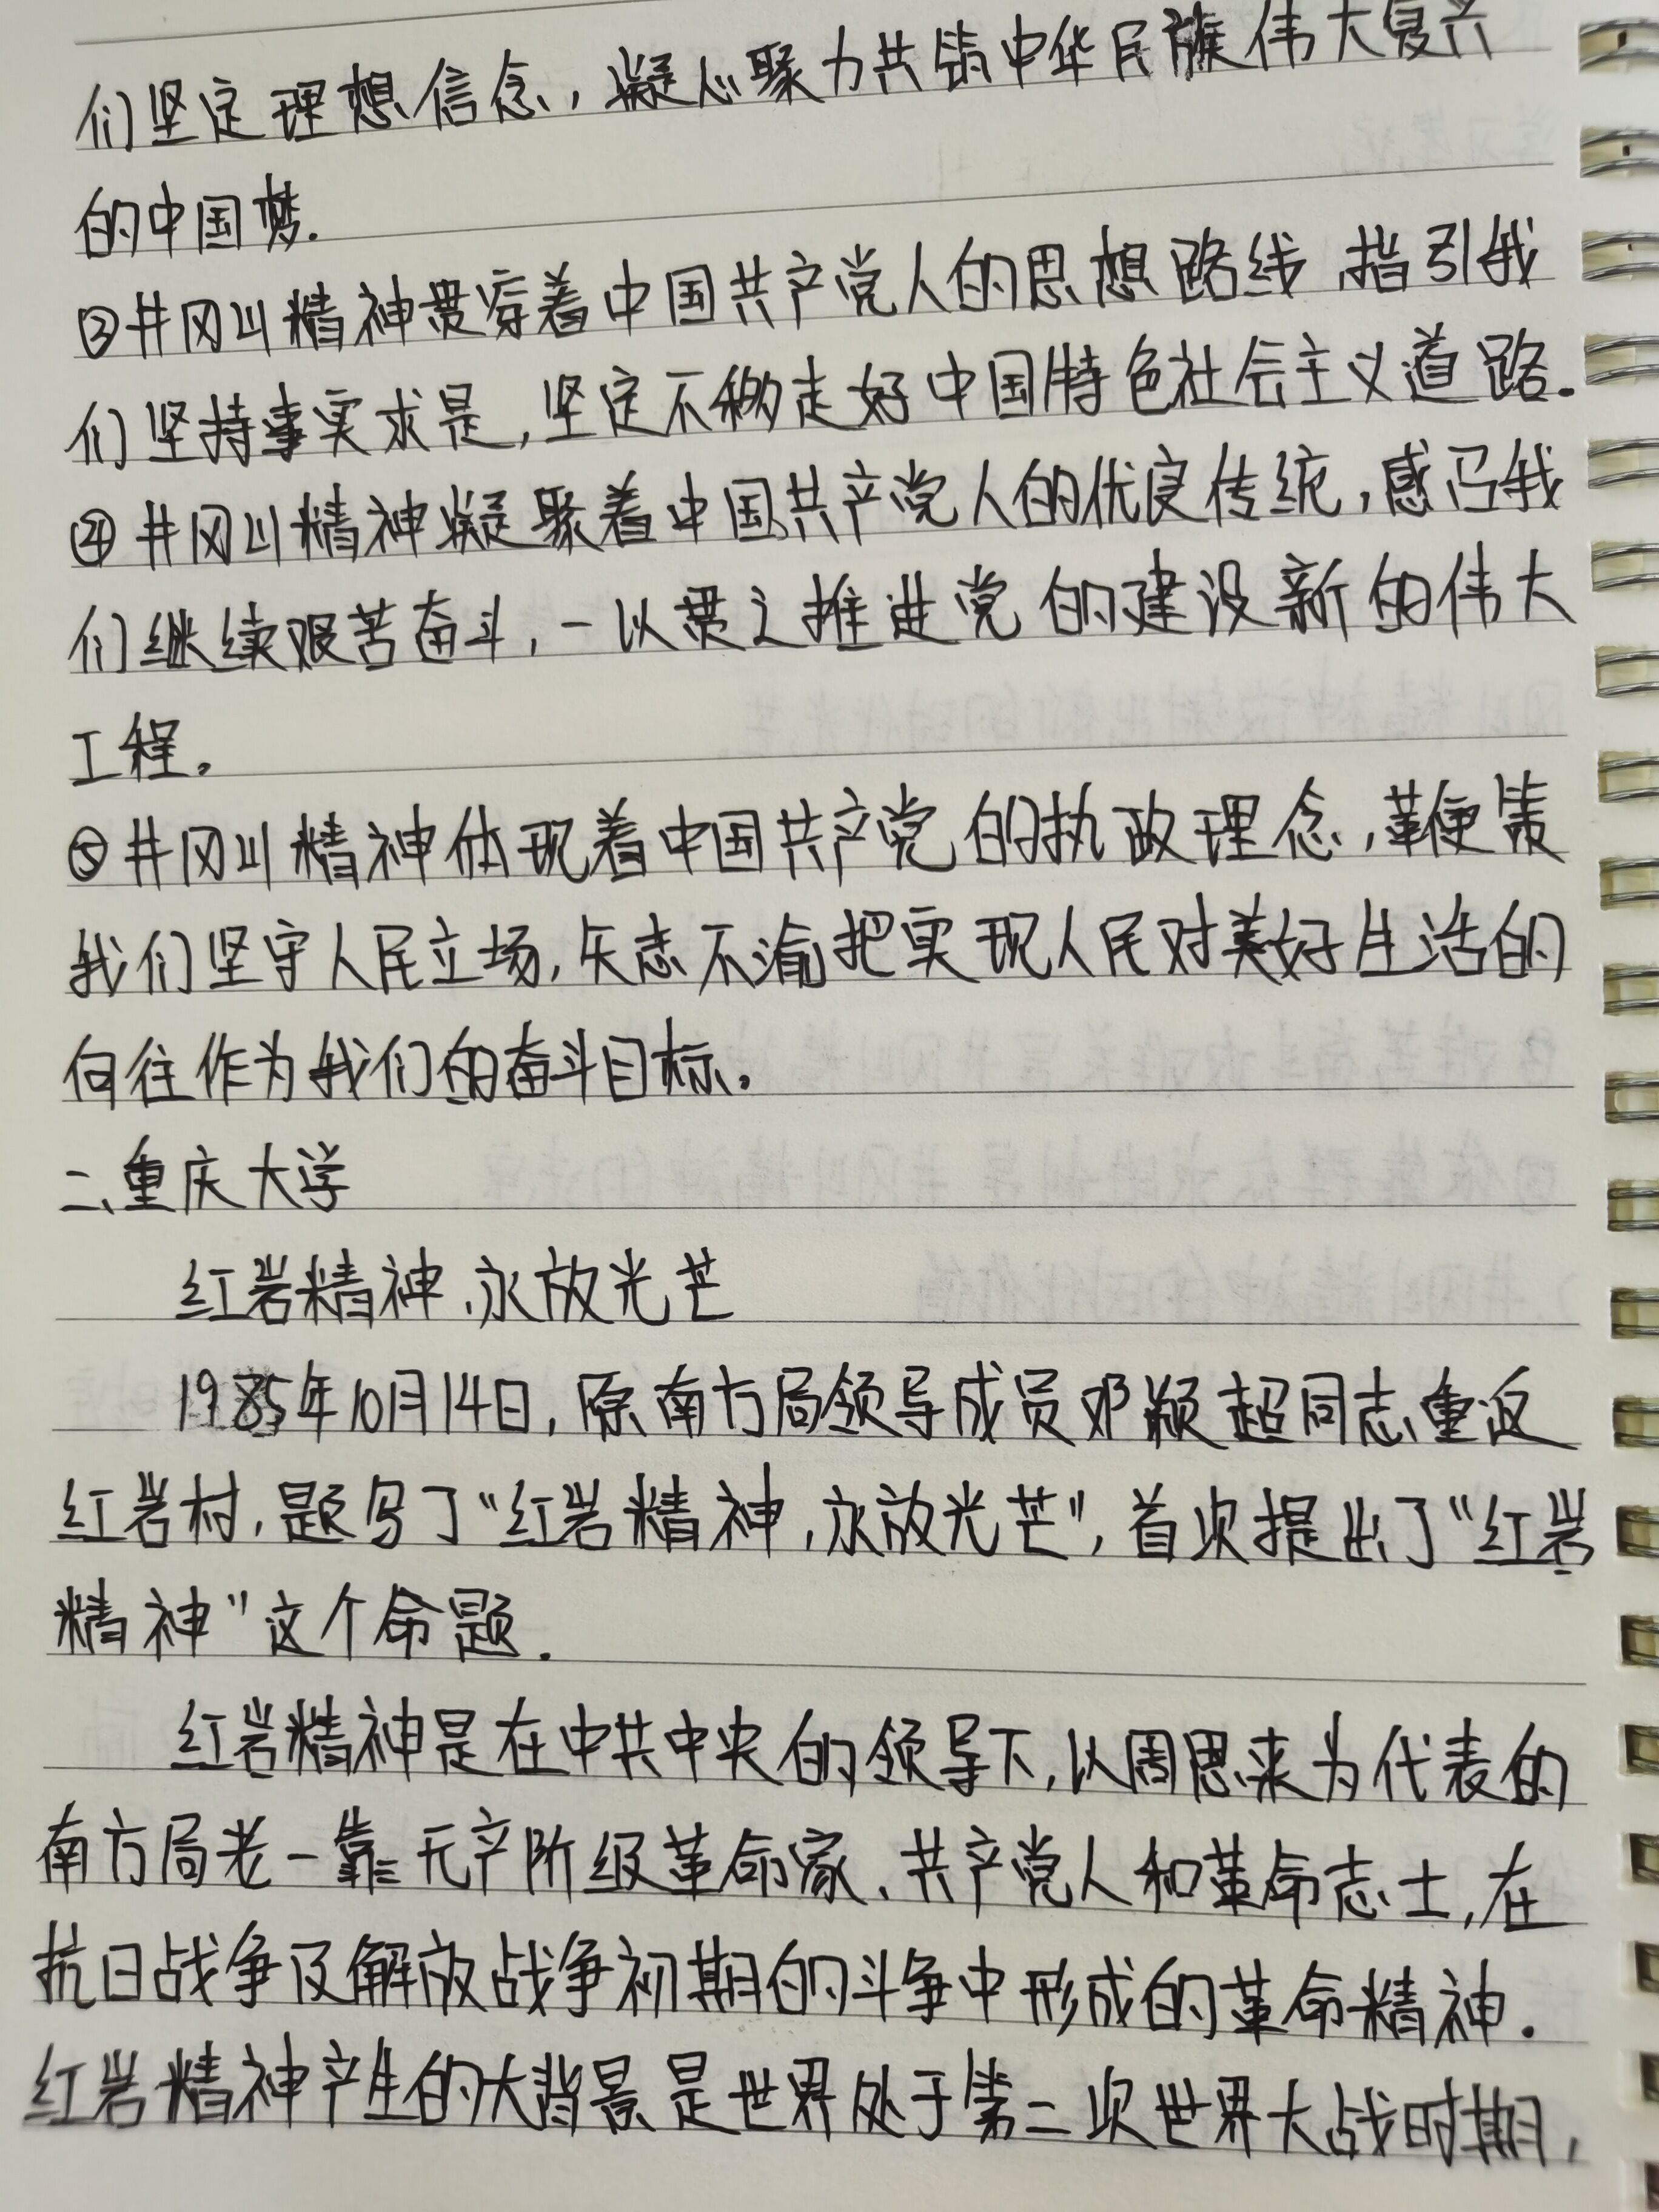 们坚定理想信念，凝心聚力共铸中华民族伟大复兴
的中国梦.
③井冈山精神贯穿着中国共产党人的思想路线,指引我
们坚持事实求是,坚定不移走好中国特色社会主义道路.
④井冈山精神凝聚着中国共产党人的优良传统,感召我
们继续艰苦奋斗,一以贯之推进党的建设新的伟大
工程。
⑤井冈山精神体现着中国共产党的执政理念,鞭策
我们坚守人民立场,矢志不渝把实现人民对美好生活的
向往作为我们的奋斗目标。
二、重庆大学
红岩精神,永放光芒
1985年10月14日,原南方局领导成员邓颖超同志重返
红岩村,题写了“红岩精神,永放光芒”,首次提出了“红岩
精神”这个命题.
红岩精神是在中共中央的领导下,以周恩来为代表的
南方局老一辈无产阶级革命家、共产党人和革命志士,在
抗日战争及解放战争初期的斗争中形成的革命精神.
红岩精神产生的大背景是世界处于第二次世界大战时期,